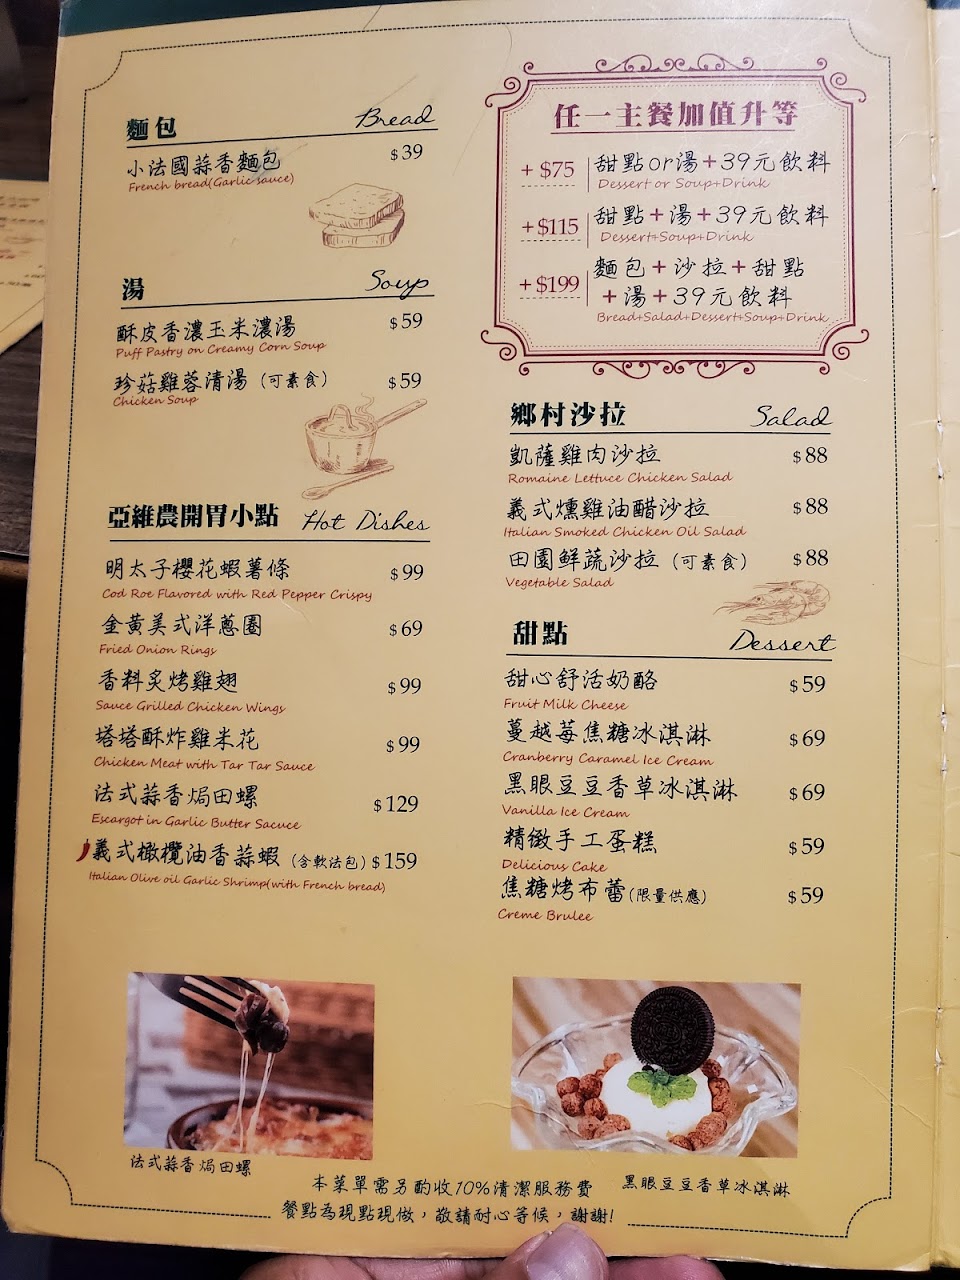 麵包 Bread
小法國蒜香麵包 $39
French bread(Garlic sauce)
湯 Soup
酥皮香濃玉米濃湯 $59
Puff Pastry on Creamy Corn Soup
珍菇雞蓉清湯（可素食） $59
Chicken Soup
亞維農開胃小點 Hot Dishes
明太子櫻花蝦薯條 $99
Cod Roe Flavored with Red Pepper Crispy
金黃美式洋蔥圈 $69
Fried Onion Rings
香料炙烤雞翅 $99
Sauce Grilled Chicken Wings
塔塔酥炸雞米花 $99
Chicken Meat with Tar Tar Sauce
法式蒜香焗田螺 $129
Escargot in Garlic Butter Sacuce
義式橄欖油香蒜蝦（含軟法包） $159
Italian Olive oil Garlic Shrimp(with French bread)
任一主餐加值升等
+$75 甜點or湯+39元飲料
Dessert or Soup+Drink
+$115 甜點+湯+39元飲料
Dessert+Soup+Drink
+$199 麵包+沙拉+甜點
+湯+39元飲料
Bread+Salad+Dessert+Soup+Drink
鄉村沙拉 Salad
凱薩雞肉沙拉 $88
Romaine Lettuce Chicken Salad
義式燻雞油醋沙拉 $88
Italian Smoked Chicken Oil Salad
田園鮮蔬沙拉（可素食） $88
Vegetable Salad
甜點 Dessert
甜心舒活奶酪 $59
Fruit Milk Cheese
蔓越莓焦糖冰淇淋 $69
Cranberry Caramel Ice Cream
黑眼豆豆香草冰淇淋 $69
Vanilla Ice Cream
精緻手工蛋糕 $59
Delicious Cake
焦糖烤布蕾（限量供應） $59
Creme Brulee
法式蒜香焗田螺
黑眼豆豆香草冰淇淋
本菜單需另酌收10%清潔服務費
餐點為現點現做，敬請耐心等候，謝謝!